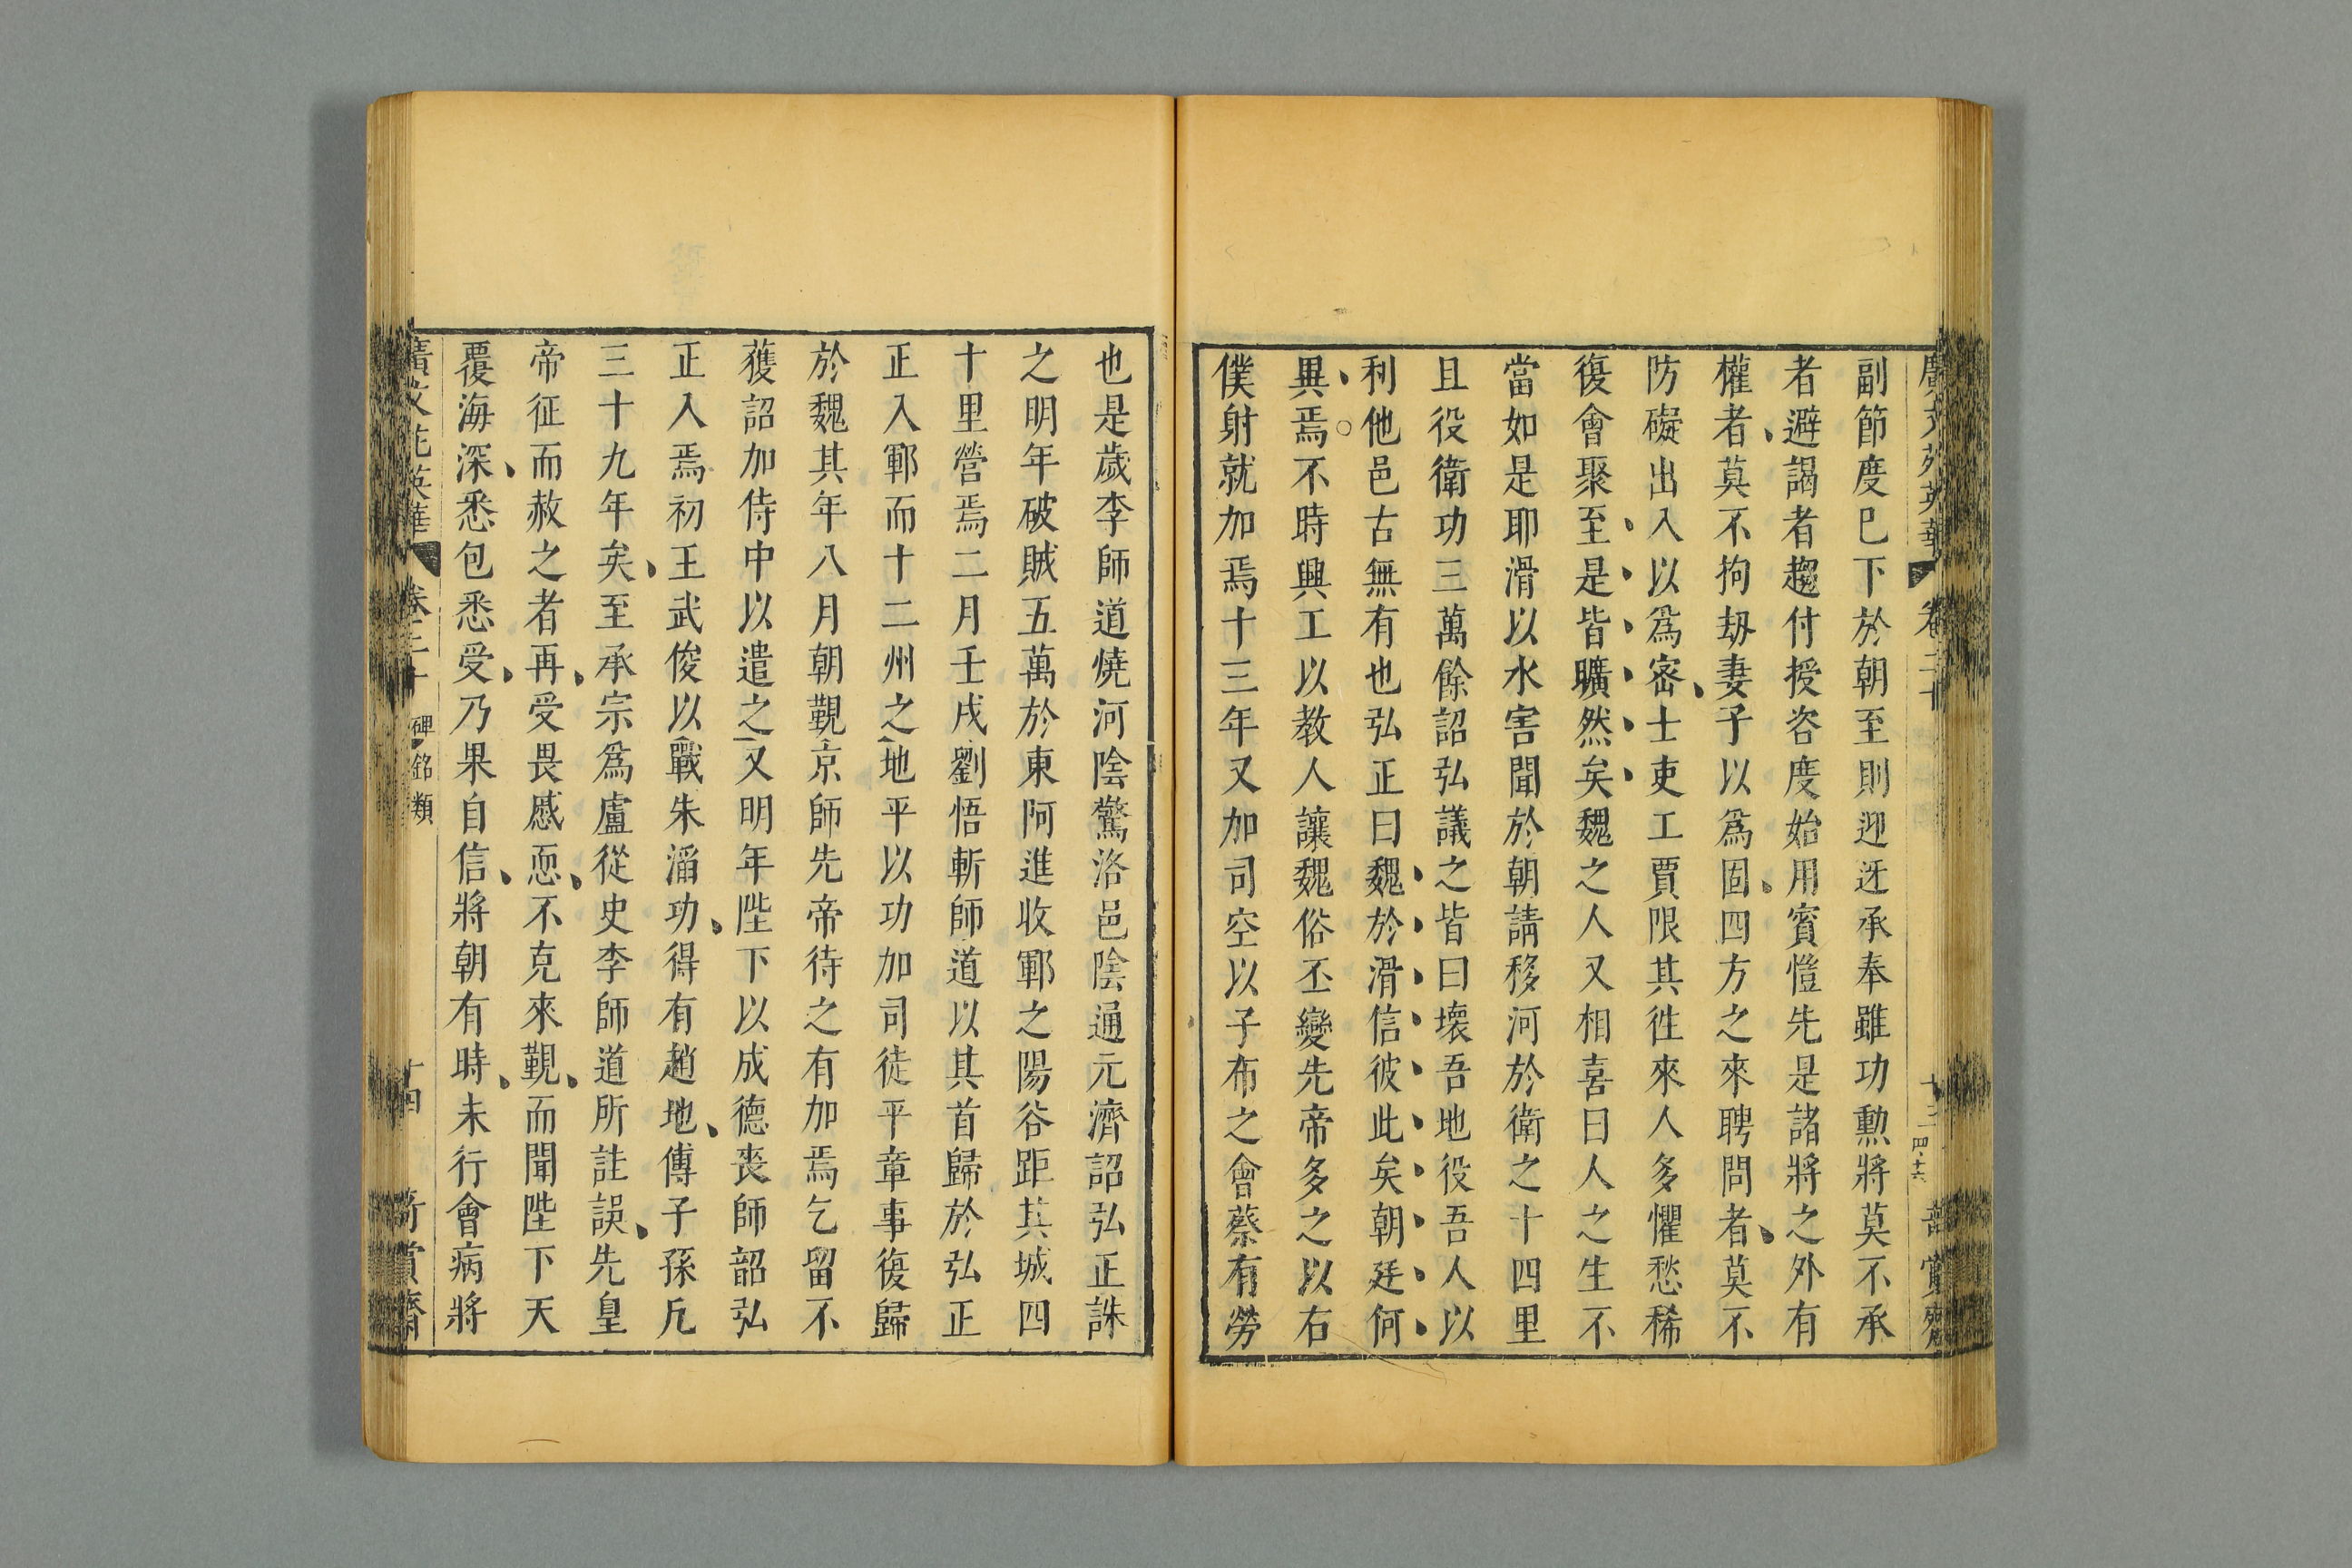 廣文苑英華 卷二十 十三 四十六 奇賞齋
副節度巳下於朝至則迎迓承奉雖功勳將莫不承
者避謁者趨付授咨度始用賓愷先是諸將之外有
權者莫不拘劫妻子以爲固四方之來聘問者莫不
防礙出入以爲密士吏工賈限其徃來人多懼愁稀
復會聚至是皆曠然矣魏之人又相喜曰人之生不
當如是耶滑以水害聞於朝請移河於衛之十四里
且役衛功三萬餘詔弘議之皆曰壞吾地役吾人以
利他邑古無有也弘正曰魏於滑信彼此矣朝廷何
異焉不時興工以教人讓魏俗丕變先帝多之以右
僕射就加焉十三年又加司空以子布之會蔡有勞
也是歲李師道燒河陰驚洛邑陰通元濟詔弘正誅
之明年破賊五萬於東阿進收鄆之陽谷距其城四
十里營焉二月壬戌劉悟斬師道以其首歸於弘正
正入鄆而十二州之地平以功加司徒平章事復歸
於魏其年八月朝覲京師先帝待之有加焉乞留不
獲詔加侍中以遣之又明年陛下以成德喪師詔弘
正入焉初王武俊以戰朱滔功得有趙地傳子孫凡
三十九年矣至承宗爲盧從史李師道所詿誤先皇
帝征而赦之者再受畏慼恧不克來覲而聞陛下天
覆海深悉包悉受乃果自信將朝有時未行會病將
廣文苑英華 卷二十 碑銘類 十四 奇賞齋